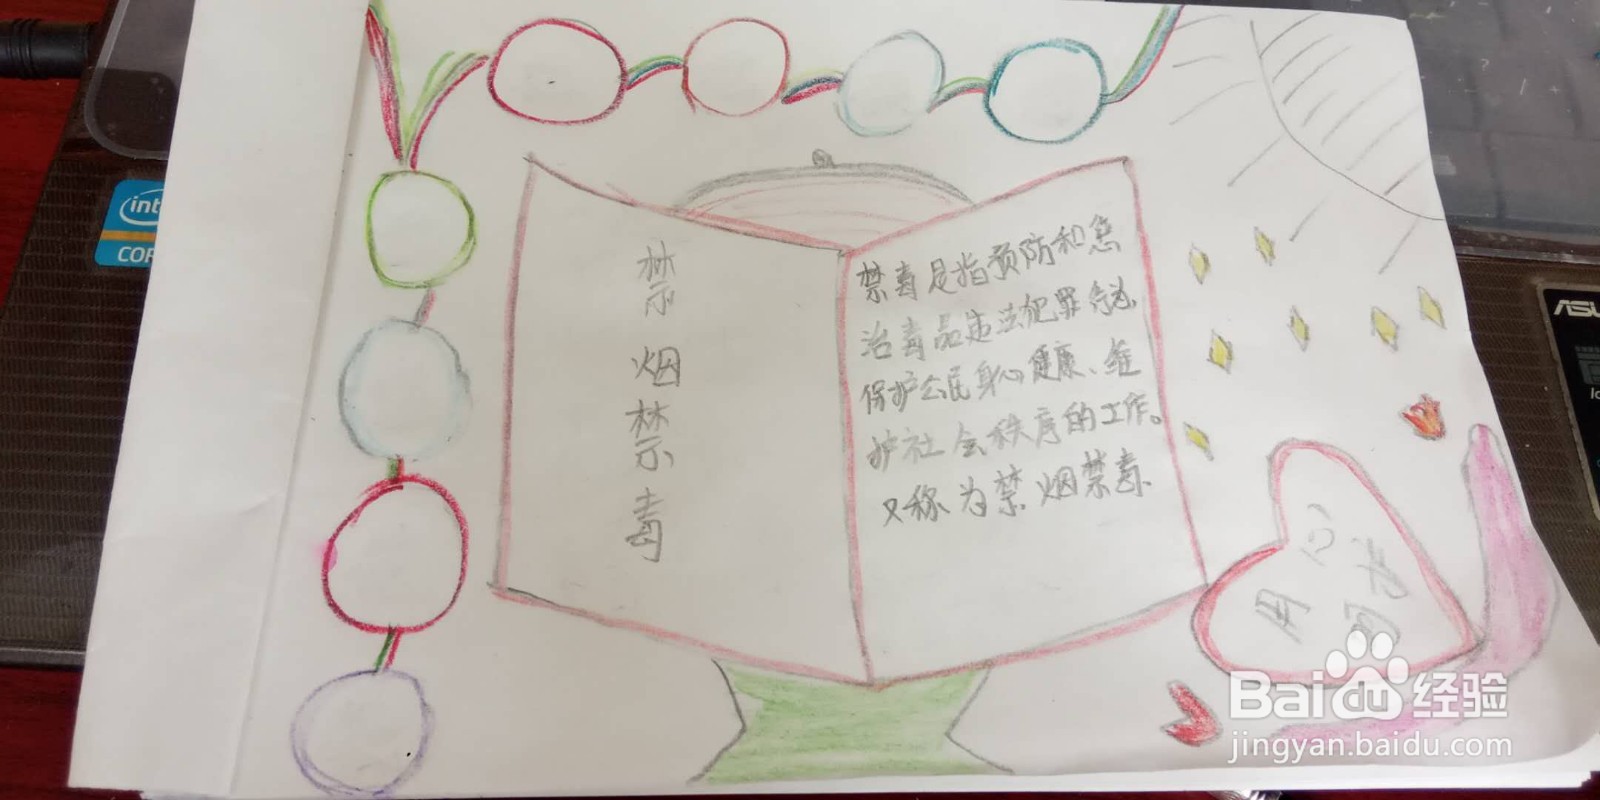 禁烟禁毒
禁毒是指预防和惩
治毒品违法犯罪行为,
保护公民身心健康、维
护社会秩序的工作。
又称为禁烟禁毒
用心
Baidu 经验
jingyan.baidu.com
int
COR
ASU